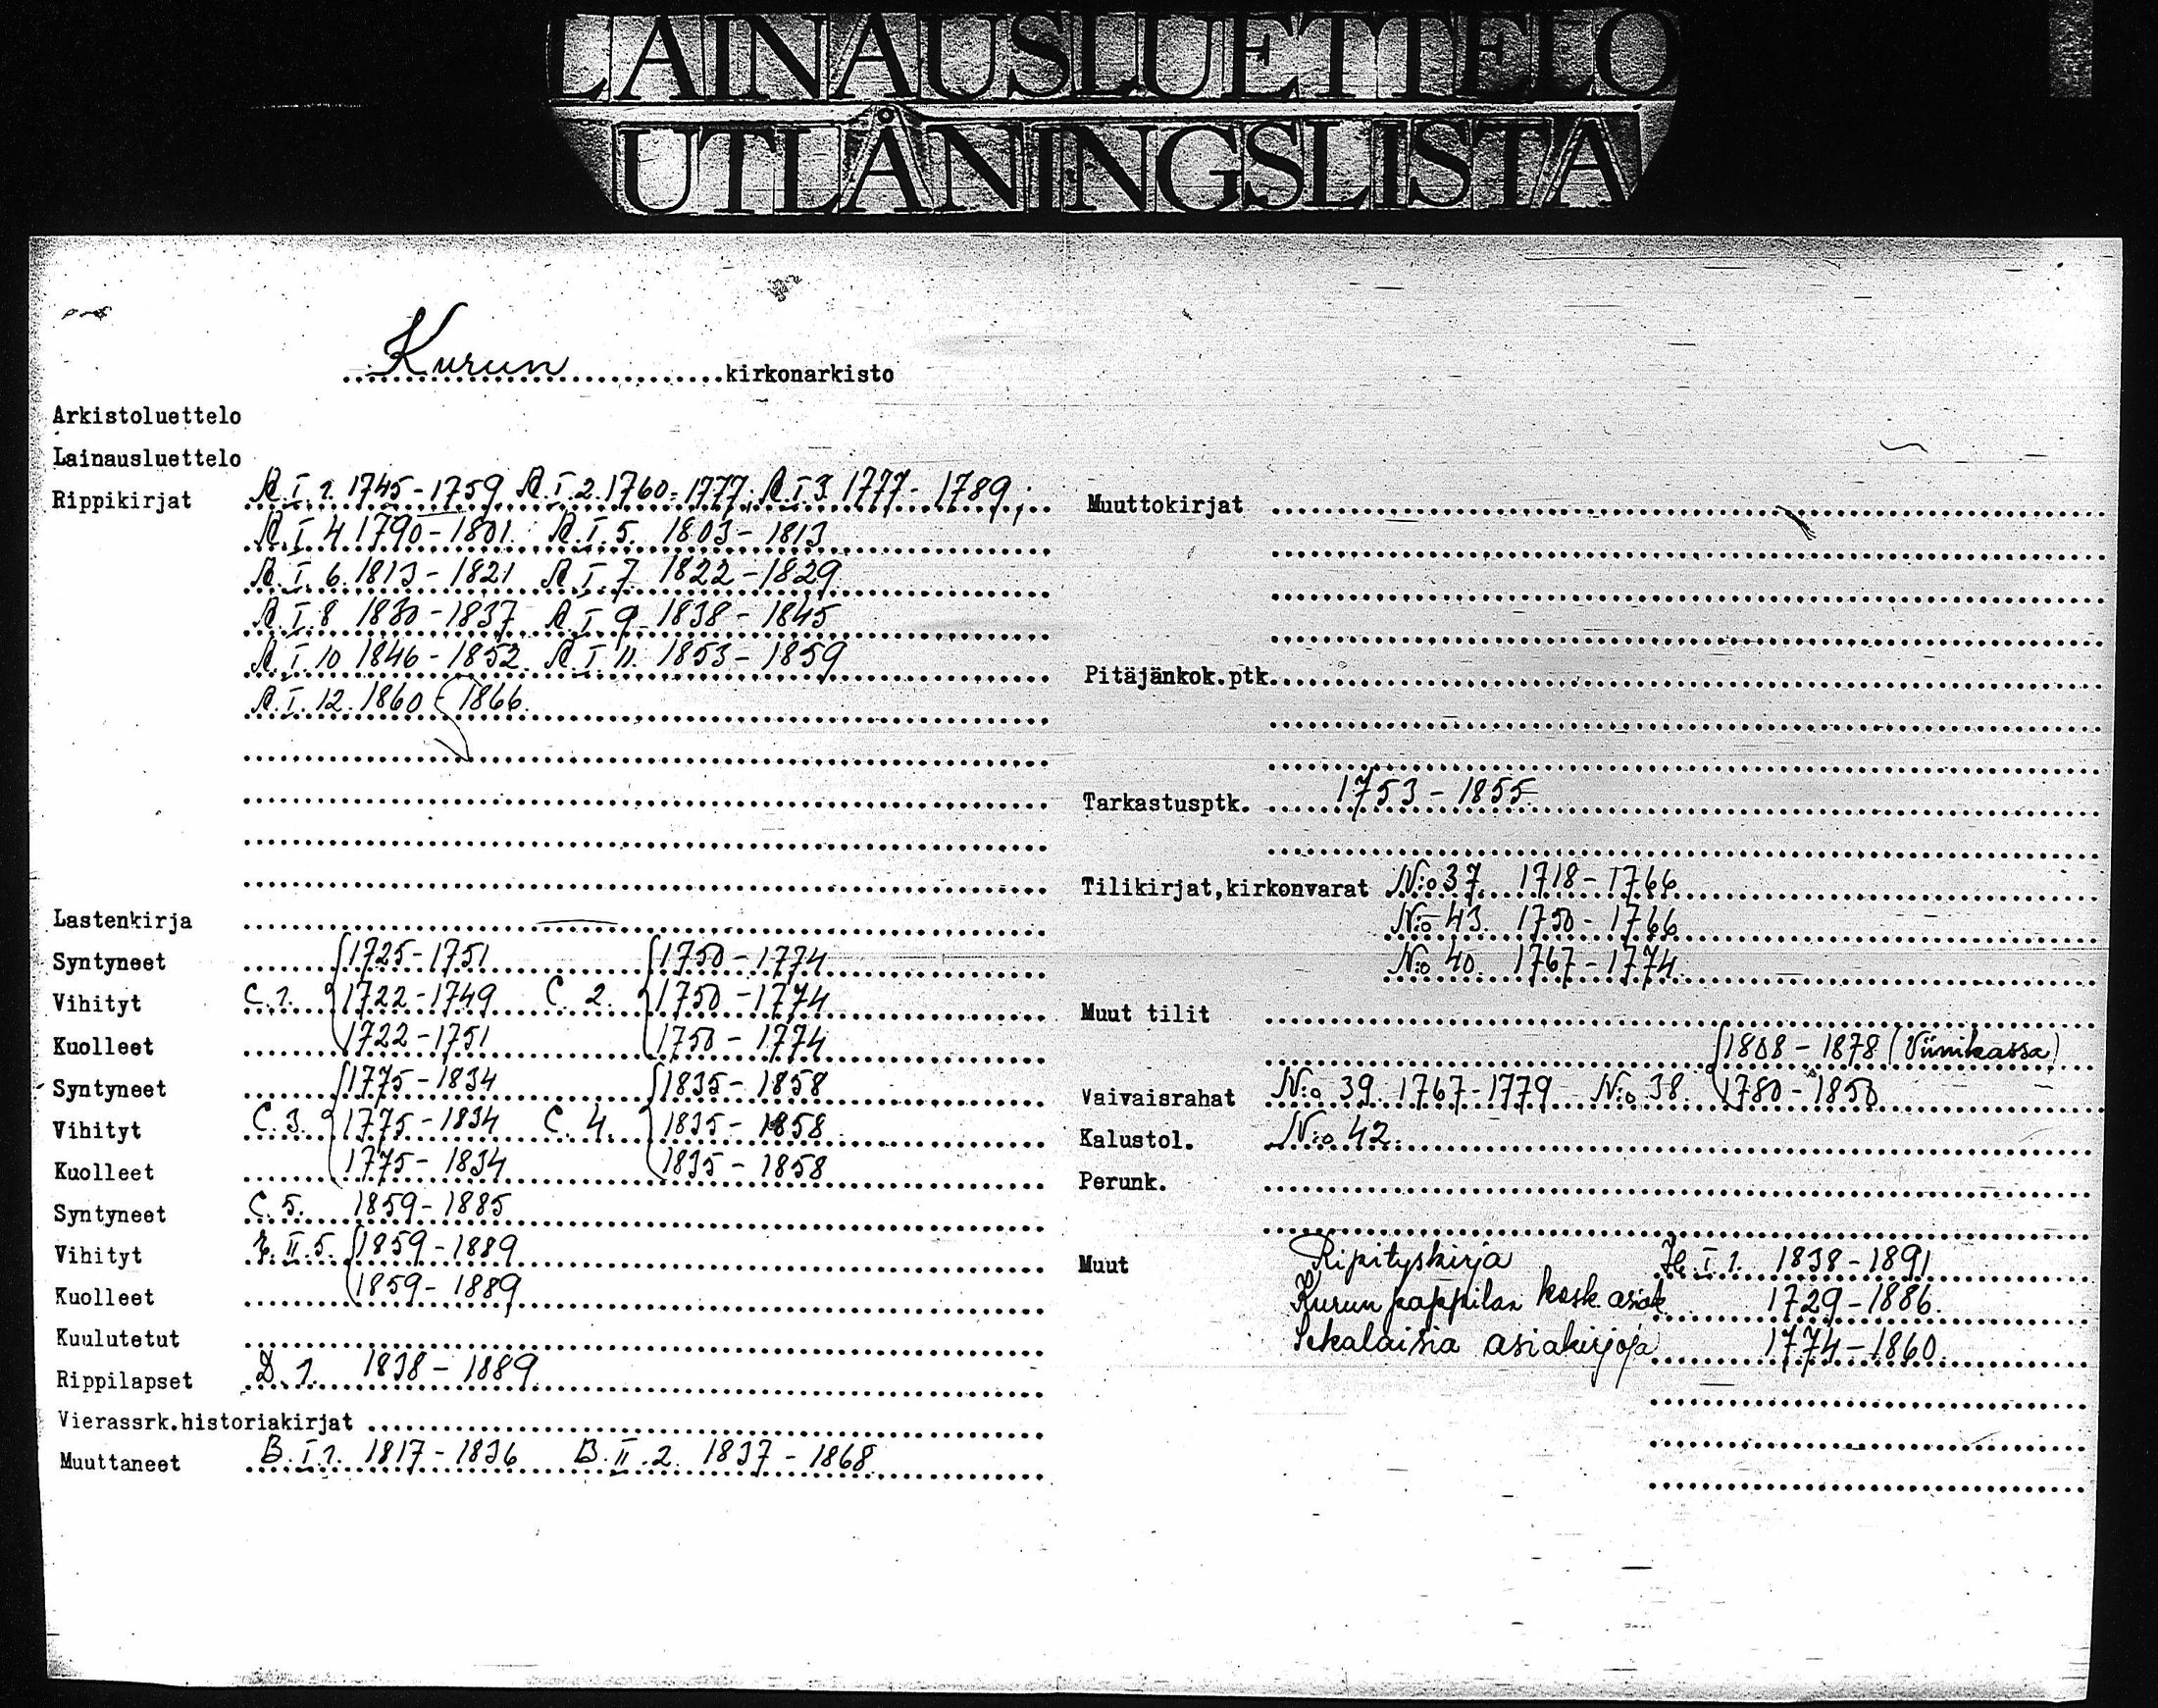 LAINAUSLUETTELO
UTLÅNINGSLISTA
Kurun kirkonarkisto
Arkistoluettelo
Lainausluettelo
Rippikirjat A.I.1. 1745-1759 A.I.2. 1760-1777; A.I.3. 1777-1789;
A.I.4 1790-1801. A.I.5. 1803-1813
A.I.6. 1813-1821 A.I.7. 1822-1829
A.I.8 1830-1837 A.I.9 1838-1845
A.I.10 1846-1852. A.I.11. 1853-1859
A.I.12. 1860-1866.
Lastenkirja —
Syntyneet 1725-1751 1750-1774
Vihityt C.1. 1722-1749 C.2. 1750-1774
Kuolleet 1722-1751 1750-1774
Syntyneet 1775-1834 1835-1858
Vihityt C.3. 1775-1834 C.4. 1835-1858
Kuolleet 1775-1834 1835-1858
Syntyneet C.5. 1859-1885
Vihityt II.5. 1859-1889
Kuolleet 1859-1889
Kuulutetut
Rippilapset D.1. 1838-1889
Vierassrk.historiakirjat
Muuttaneet B.I.1. 1817-1836 B.II.2. 1837-1868
Muuttokirjat
Pitäjänkok.ptk.
Tarkastusptk. 1753-1855
Tilikirjat,kirkonvarat N:o 37. 1718-1766
N:o 43. 1750-1766
N:o 40. 1767-1774.
Muut tilit
1808-1878 (Viinikassa)
Vaivaisrahat N:o 39. 1767-1779 N:o 38. 1780-1850
Kalustol. N:o 42.
Perunk.
Muut Ripityskirja I 1. 1838-1891
Kurun pappilan kosk. asiak. 1729-1886.
Sekalaisia asiakirjoja 1774-1860.